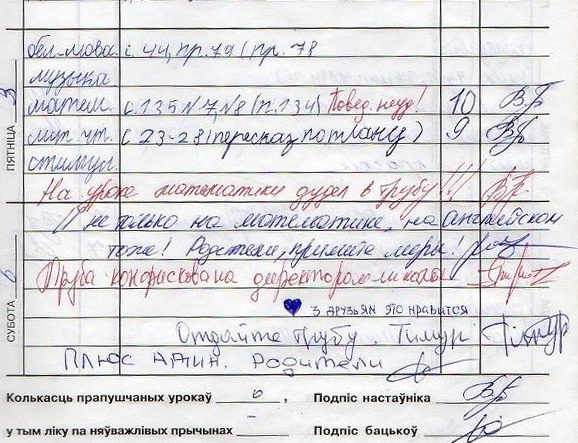 бел-мова. с. 44, пр. 79 / пр. 78
музыка.
ПЯТНІЦА
матем. с. 135 №7, №8 (п. 134) Повед. неуд! 10
с 23-28 (пересказ по плану) 9
На уроке математики дудел в трубу!!!
И не только на математике, на английском
тоже! Родители, примите меры!
Труба конфискована директором школы
СУБОТА 6
3 друзьям это нравится
Отдайте трубу. Тимур
Плюс адин. Родители
Колькасць прапушчаных урокаў 6, Подпіс настаўніка
у тым ліку па няўважлівых прычынах Подпіс бацькоў